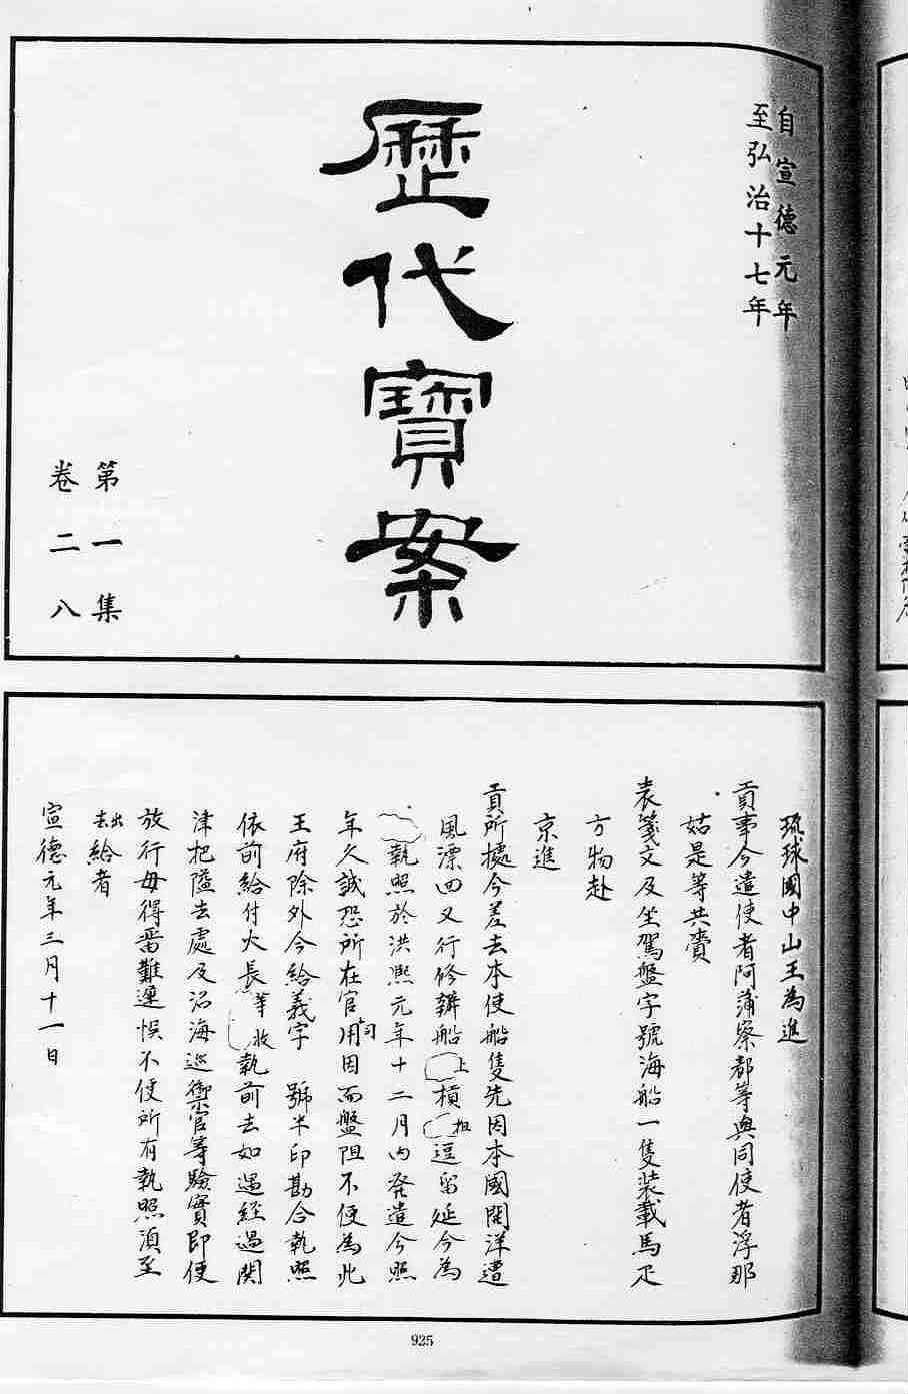 自宣德元年
至弘治十七年
歷代寶案
第一集
卷二八
琉球國中山王為進
貢事今遣使者阿蒲察都等與同使者浮那
姑是等共賫
表箋文及坐駕盤字號海船一隻裝載馬疋
方物赴
京進
貢所據今差去本使船隻先因本國開洋遭
風漂回又行修辦船上槓柤逗留延今為
執照於洪熙元年十二月內發遣今照
年久誠恐所在官司用因而盤阻不便為此
王府除外今給義字 號半印勘合執照
依前給付火長等收執前去如遇經過關
津把隘去處及沿海巡禦官等驗實即便
放行毋得留難遲悞不便所有執照須至
出給者
宣德元年三月十一日
925